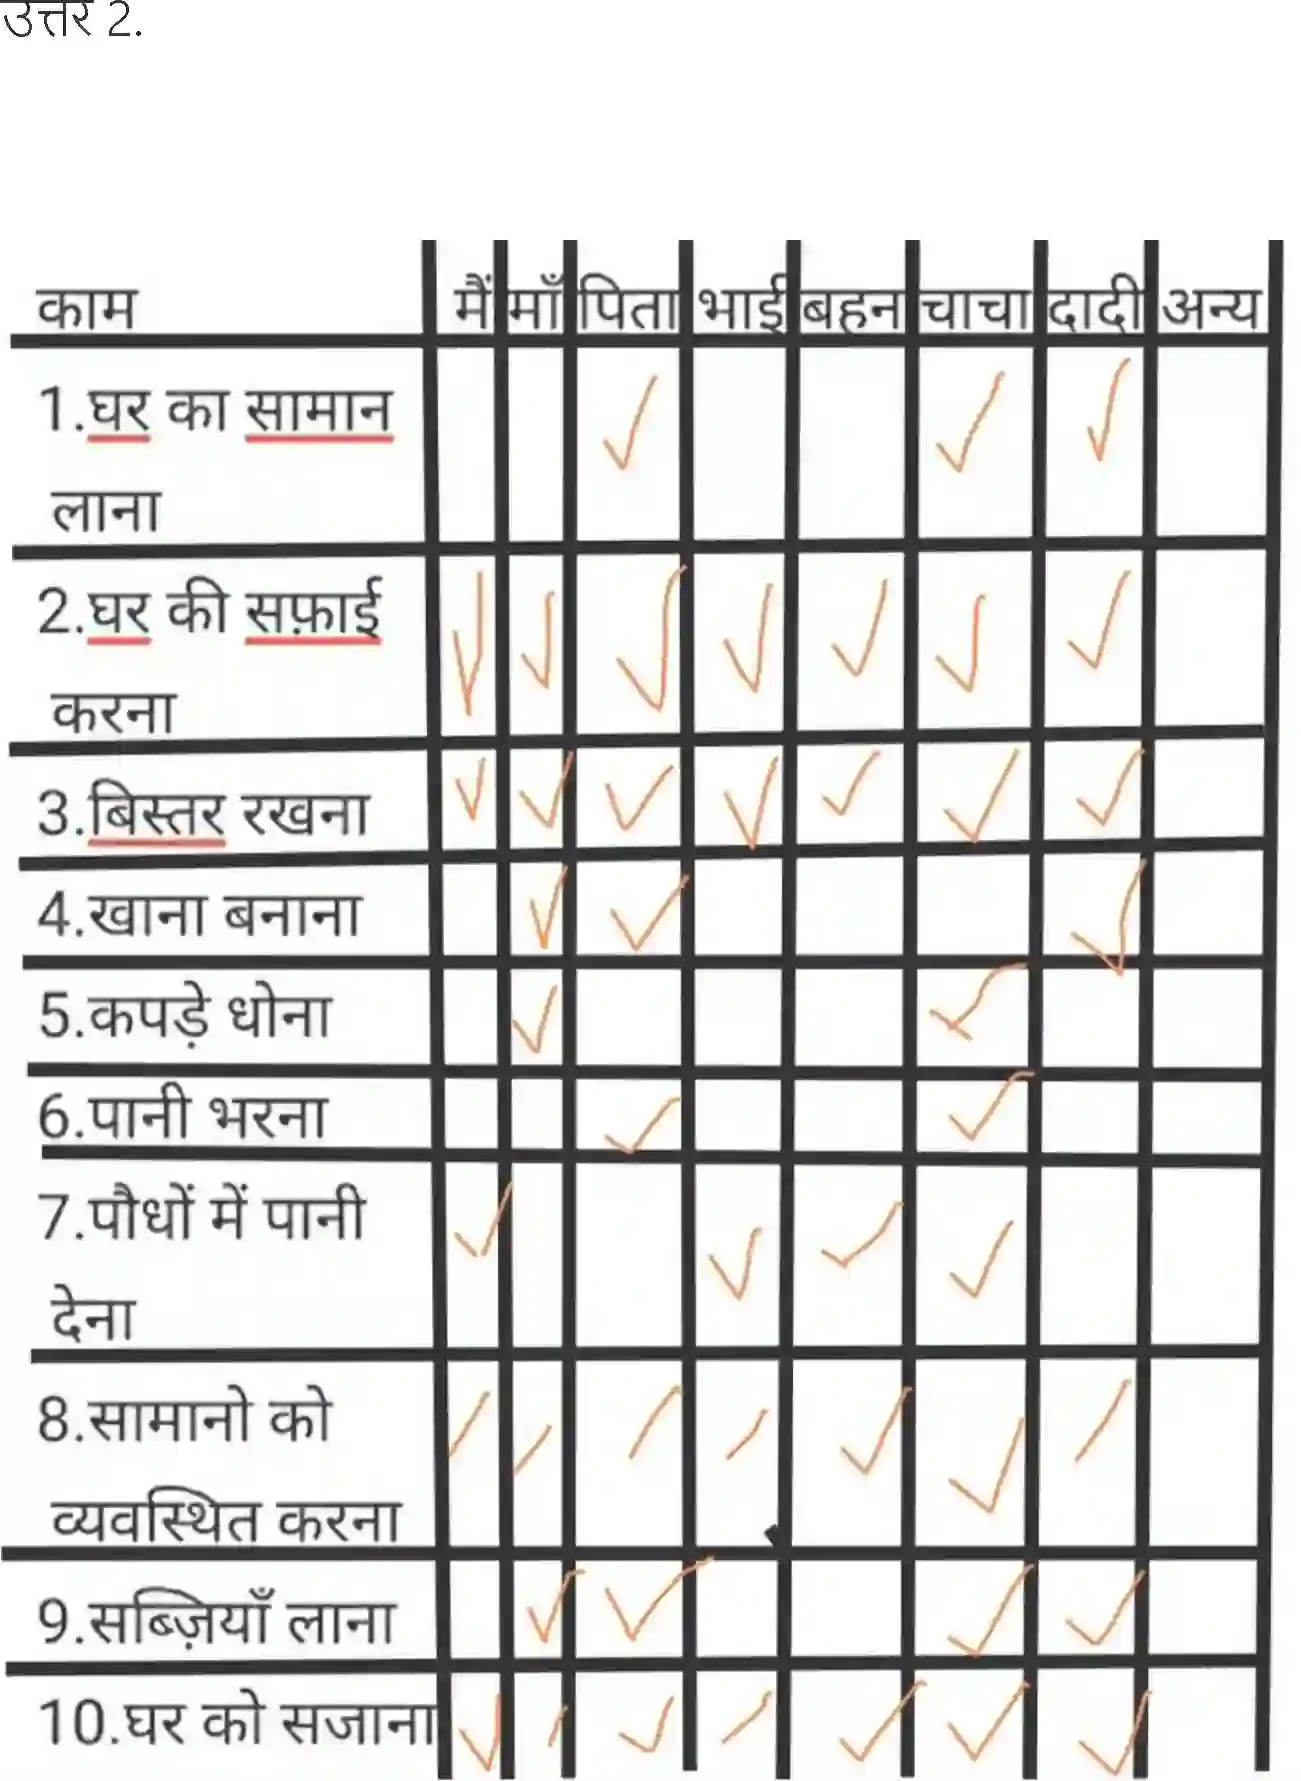 उत्तर 2.
काम मैं माँ पिता भाई बहन चाचा दादी अन्य
1.घर का सामान ✓ ✓ ✓
लाना
2.घर की सफ़ाई ✓ ✓ ✓ ✓ ✓ ✓ ✓
करना
3.बिस्तर रखना ✓ ✓ ✓ ✓ ✓ ✓ ✓
4.खाना बनाना ✓ ✓ ✓
5.कपड़े धोना ✓ ✓
6.पानी भरना ✓ ✓
7.पौधों में पानी ✓ ✓ ✓ ✓
देना
8.सामानो को / / / / ✓ ✓ /
व्यवस्थित करना
9.सब्ज़ियाँ लाना ✓ ✓ ✓ ✓
10.घर को सजाना ✓ / ✓ / ✓ ✓ ✓